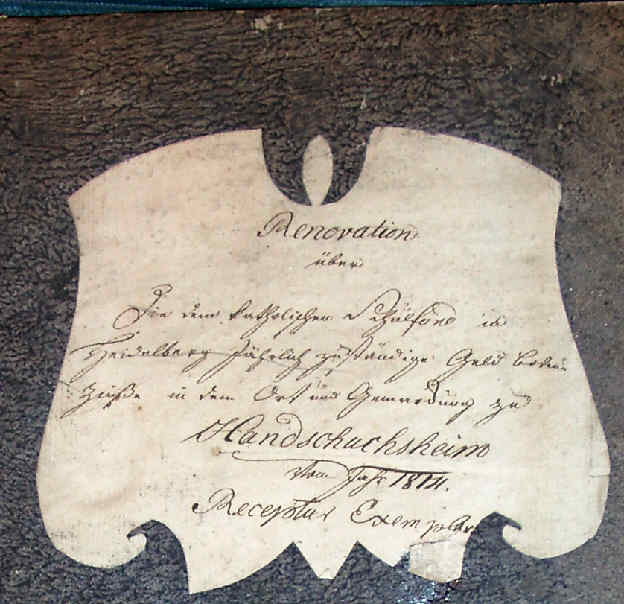 Renovation
über
Die dem katholischen Schulfond in
Heidelberg jährlich zuständige Geld boden
Zinße in dem Ort und Gemarkung zu
Handschuchsheim
vom Jahr 1814.
Receptur Exemplar